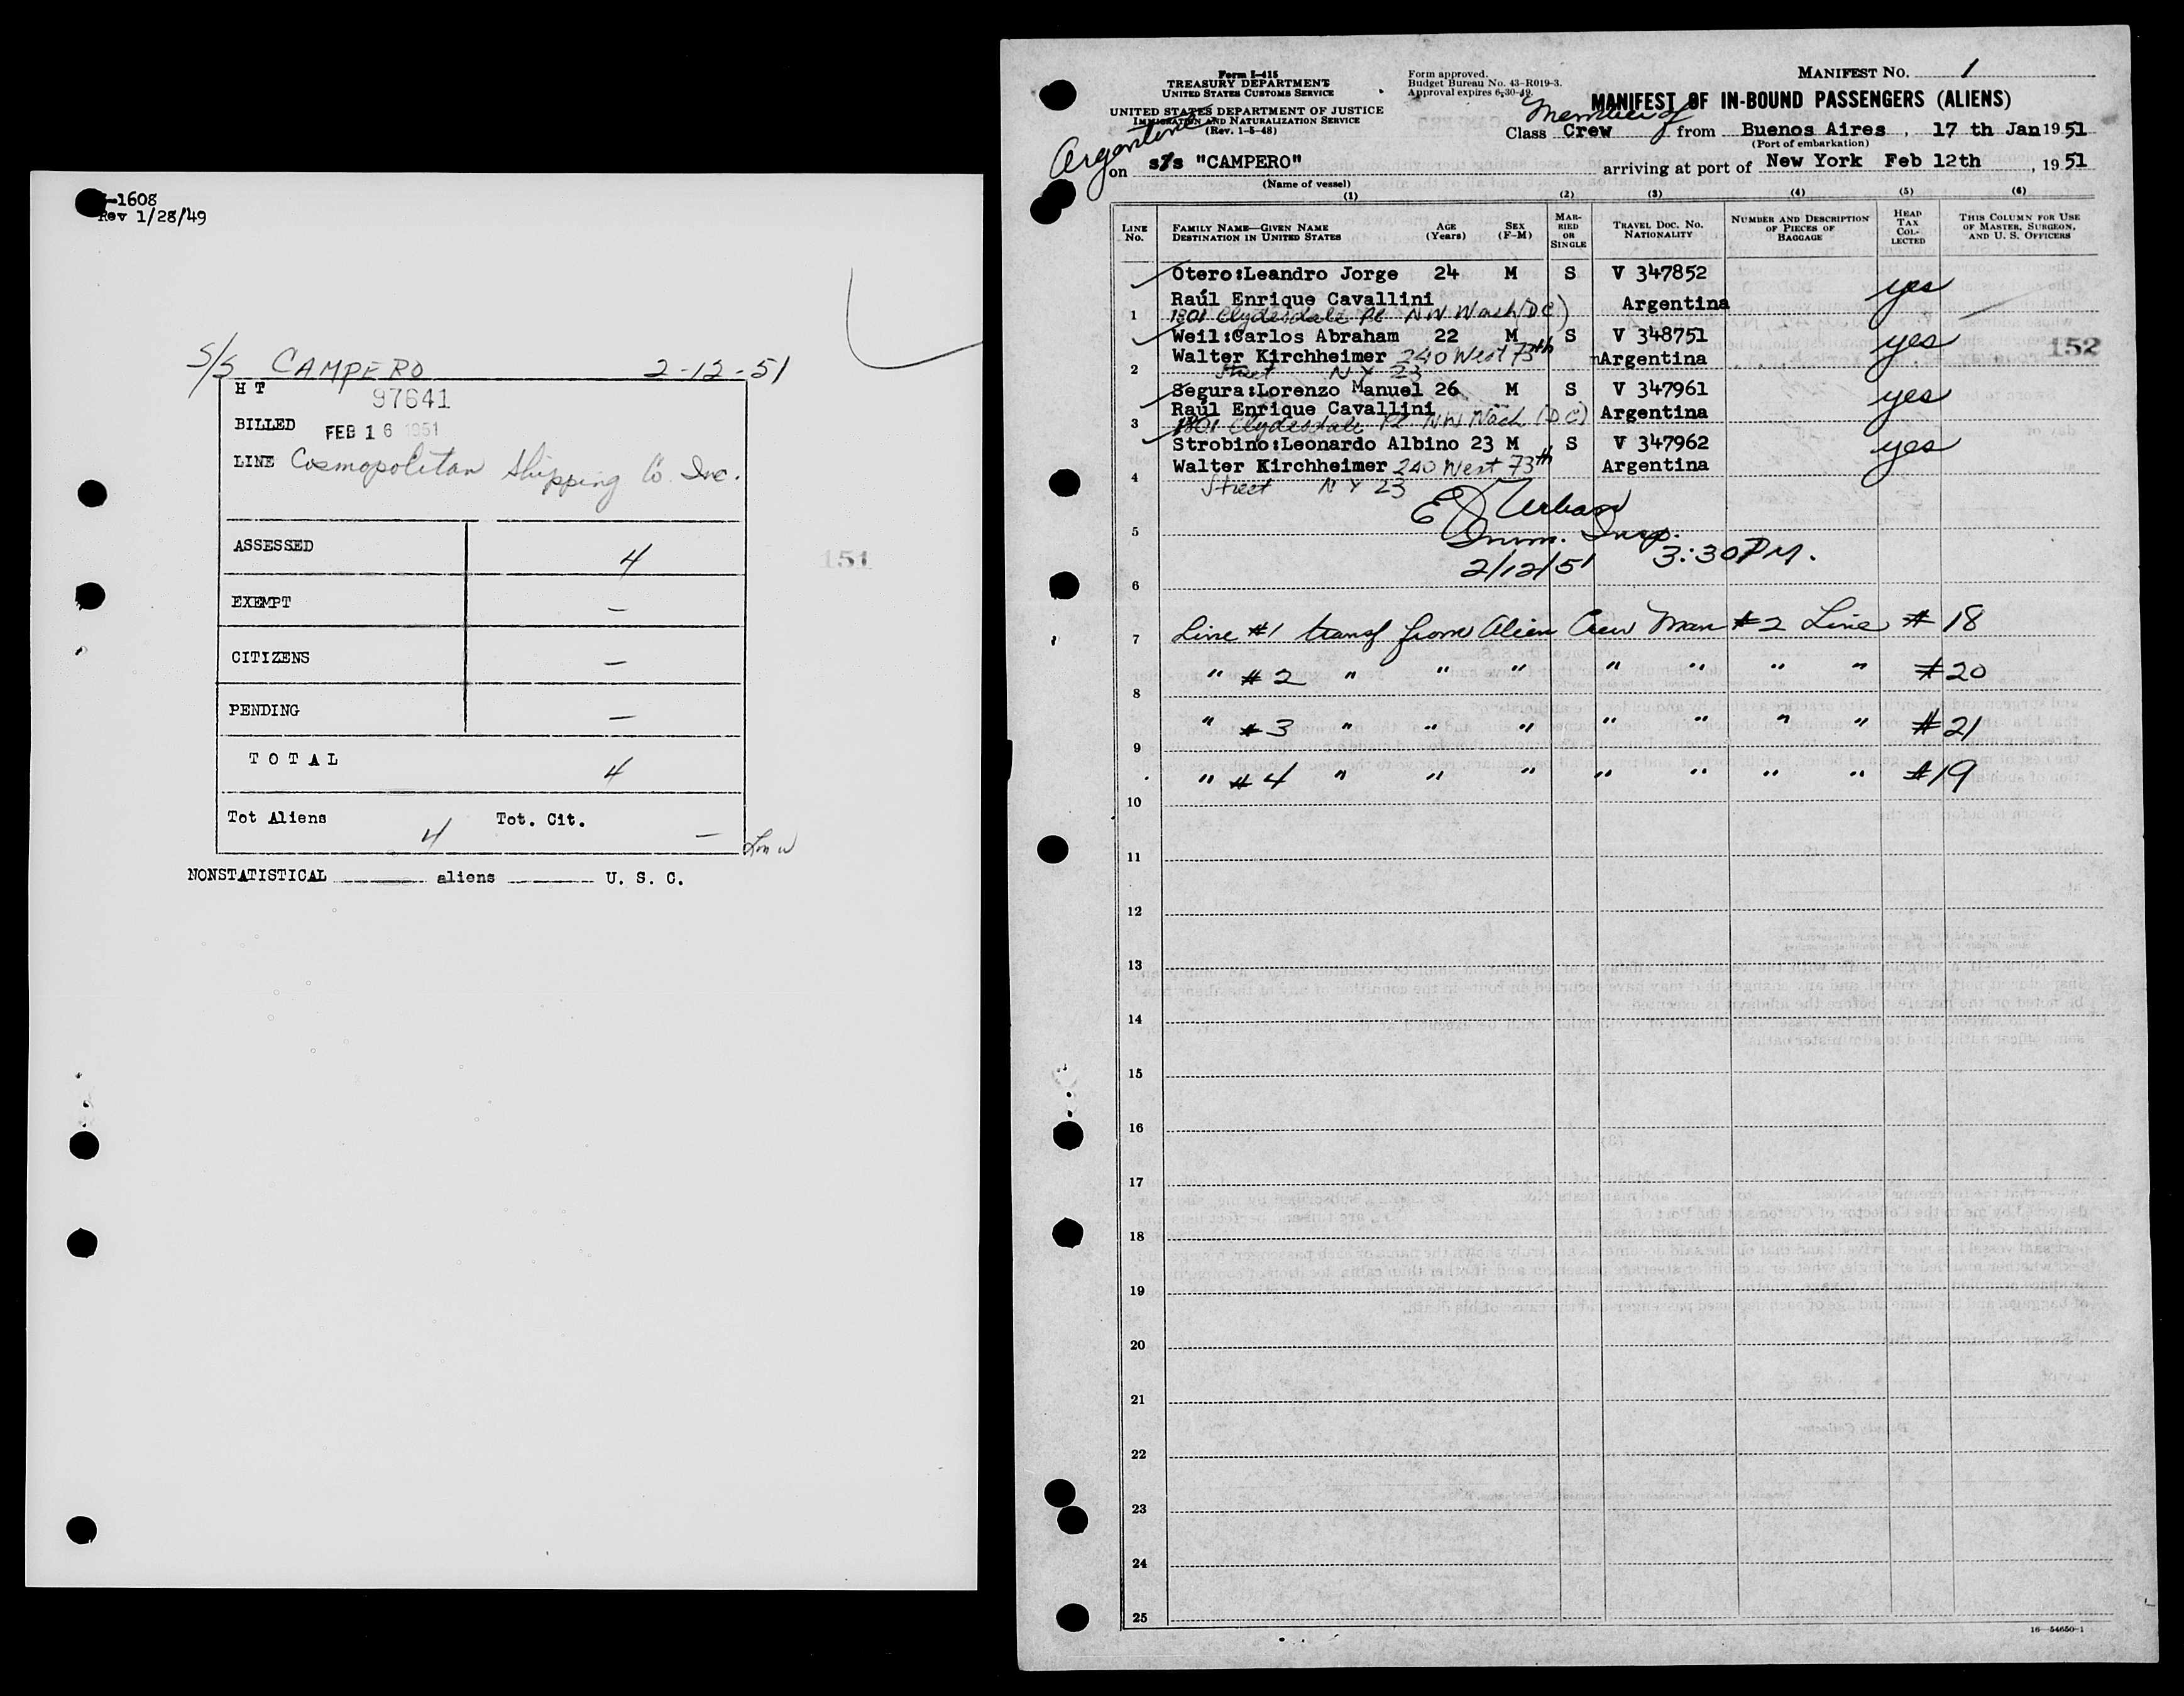 -1608
Rev 1/28/49
S/S CAMPERO 2-12-51
H T 97641
BILLED FEB 16 1951
LINE Cosmopolitan Shipping Co. Inc.
ASSESSED 4
EXEMPT –
CITIZENS –
PENDING –
T O T A L 4
Tot Aliens 4 Tot. Cit. –
NONSTATISTICAL aliens U. S. C.
151
Form I-415
TREASURY DEPARTMENT
UNITED STATES CUSTOMS SERVICE
UNITED STATES DEPARTMENT OF JUSTICE
IMMIGRATION AND NATURALIZATION SERVICE
(Rev. 1-5-48)
Form approved.
Budget Bureau No. 43-R019-3.
Approval expires 6-30-49.
MANIFEST NO. 1
MANIFEST OF IN-BOUND PASSENGERS (ALIENS)
Member of
Class Crew from Buenos Aires, 17 th Jan 1951
(Port of embarkation)
Argentine
on s/s "CAMPERO" arriving at port of New York Feb 12th, 1951
(Name of vessel)
(1) (2) (3) (4) (5) (6)
LINE No. FAMILY NAME—GIVEN NAME DESTINATION IN UNITED STATES AGE (Years) SEX (F-M) MARRIED OR SINGLE TRAVEL DOC. NO. NATIONALITY NUMBER AND DESCRIPTION OF PIECES OF BAGGAGE HEAD TAX COLLECTED THIS COLUMN FOR USE OF MASTER, SURGEON, AND U. S. OFFICERS
Otero:Leandro Jorge 24 M S V 347852
Raúl Enrique Cavallini Argentina yes
1 1801 Clydesdale Pl NW Wash (DC)
Weil:Carlos Abraham 22 M S V 348751 yes
Walter Kirchheimer 240 West 73th Argentina 152
2 Street N Y 23
Segura:Lorenzo Manuel 26 M S V 347961 yes
Raúl Enrique Cavallini Argentina
3 1801 Clydesdale Pl NW Wash (DC)
Strobino:Leonardo Albino 23 M S V 347962 yes
Walter Kirchheimer 240 West 73th Argentina
4 Street N Y 23
Urban
5 Imm. Insp.
2/12/51 3:30 PM.
6
7 Line #1 transf from Alien Crew Man #2 Line #18
8 " #2 " " " " " " " #20
9 " #3 " " " " " " " #21
10 " #4 " " " " " " " #19
11
12
13
14
15
16
17
18
19
20
21
22
23
24
25
16—54650-1